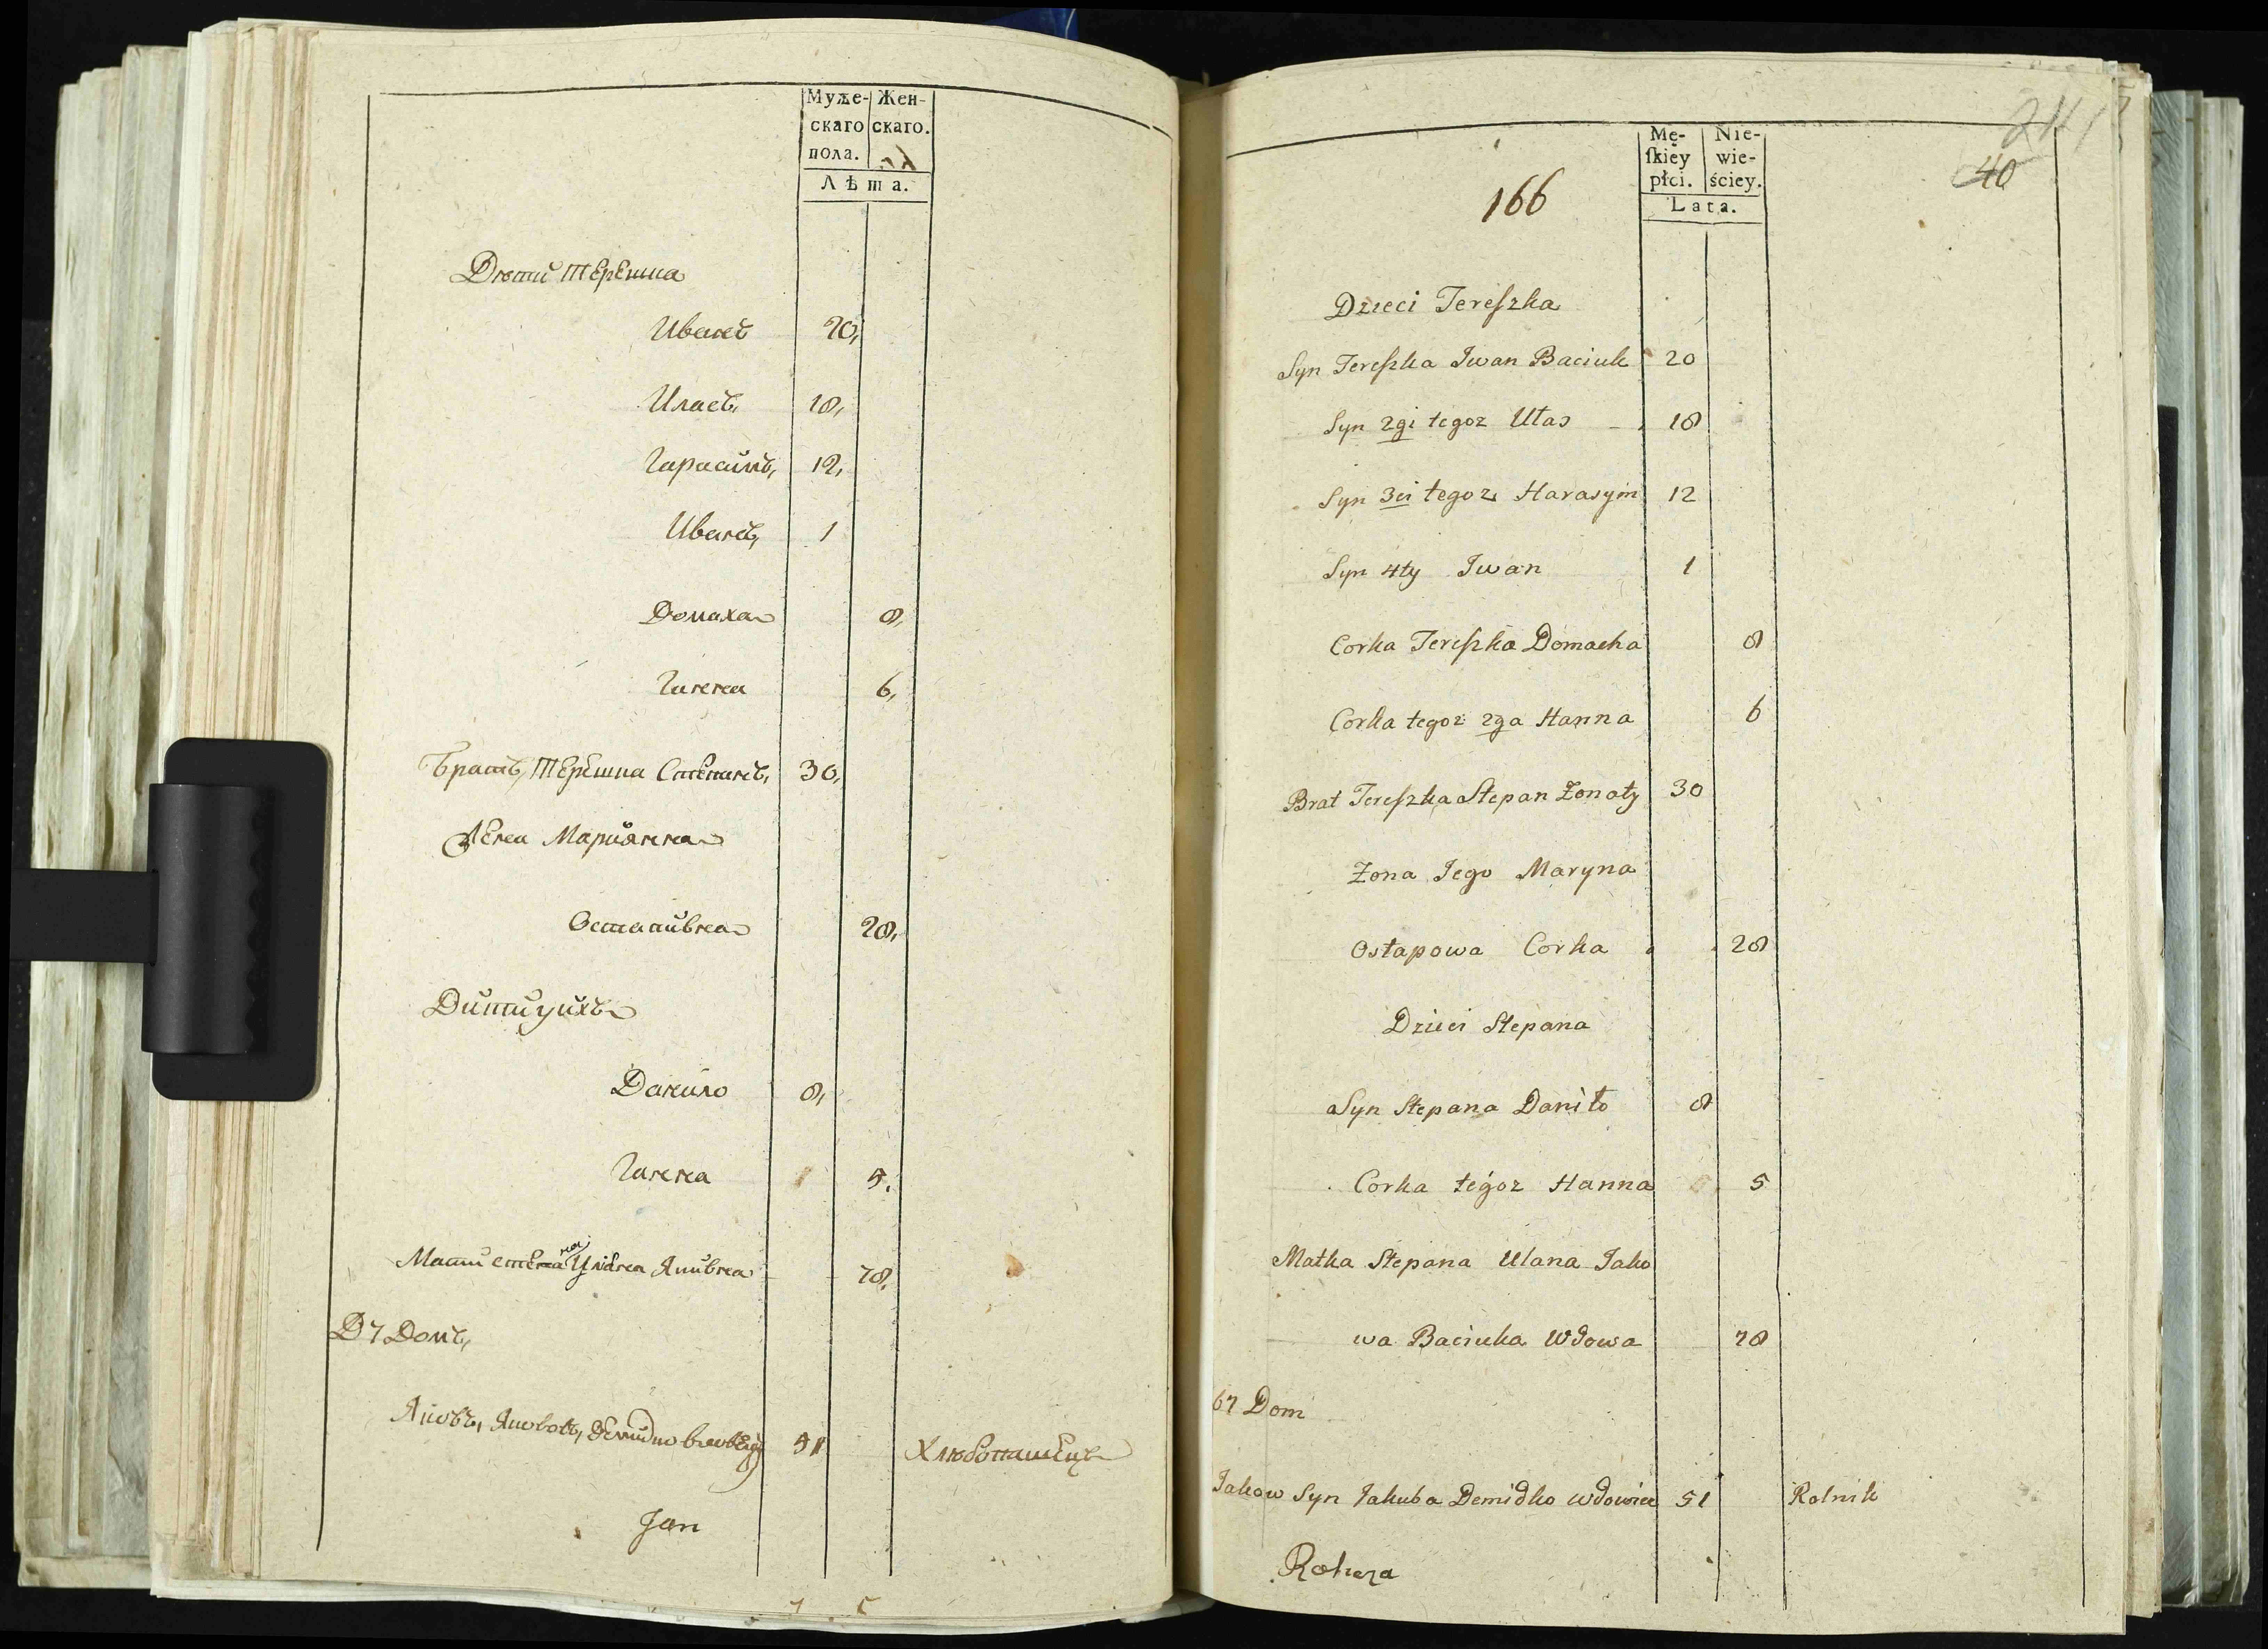 Муже- Жен-
скаго скаго.
пола.
Лѣта.
Дѣти Терешка
Иванъ 20,
Иласъ, 18,
Гарасимъ, 12,
Иванъ, 1
Домаха 8,
Ганна 6,
Братъ, Терешка Степанъ, 30,
Жена Мариянна
Остапивна 28,
Дити ихъ
Данило 8,
Ганна 5,
Мати Улiяна Якивна 78,
67 Домъ,
Яковъ, Яковов, Демидко 51 Хлюбопашецъ
Jan
166
Mę- Nie-
ſkiey wie-
płci. ściey.
Lata.
211
40
Dzieci Tereſzka
Syn Tereſzka Iwan Baciuk 20
Syn 2gi tegoz Ułas - 18
Syn 3ci tegoz Harasym 12
Syn 4ty Iwan 1
Corka Tereſzka Domacha 8
Corka tegoz 2ga Hanna 6
Brat Tereſzka Stepan Żonaty 30
Żona Iego Maryna
Ostapowa Corka 28
Dzieci Stepana
Syn Stepana Daniło 8
Corka tegoz Hanna 5
Matka Stepana Ulana Jako
wa Baciuka Wdowa 78
67 Dom
Jakow Syn Jakuba Demidko Wdowiec 51 Rolnik
Rohoza